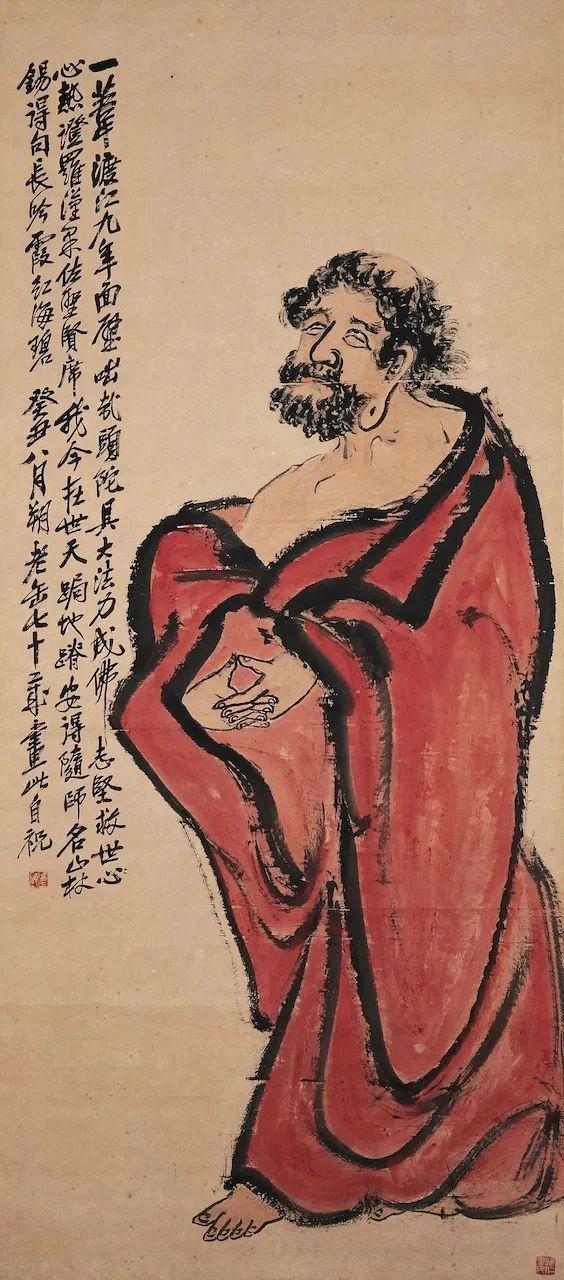 一葦渡江九年面壁咄哉頭陀具大法力成佛志堅救世心
心熱證羅漢果作聖賢席我今在世天跼地蹐安得隨師名山杖
錫得句長吟霞紅海碧 癸丑八月朔老缶七十歲畫此自祝